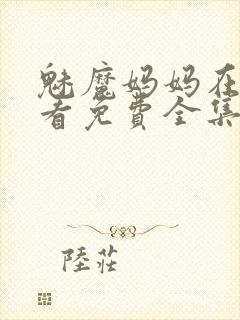 魅魔妈妈在
看免費全集
陸莊